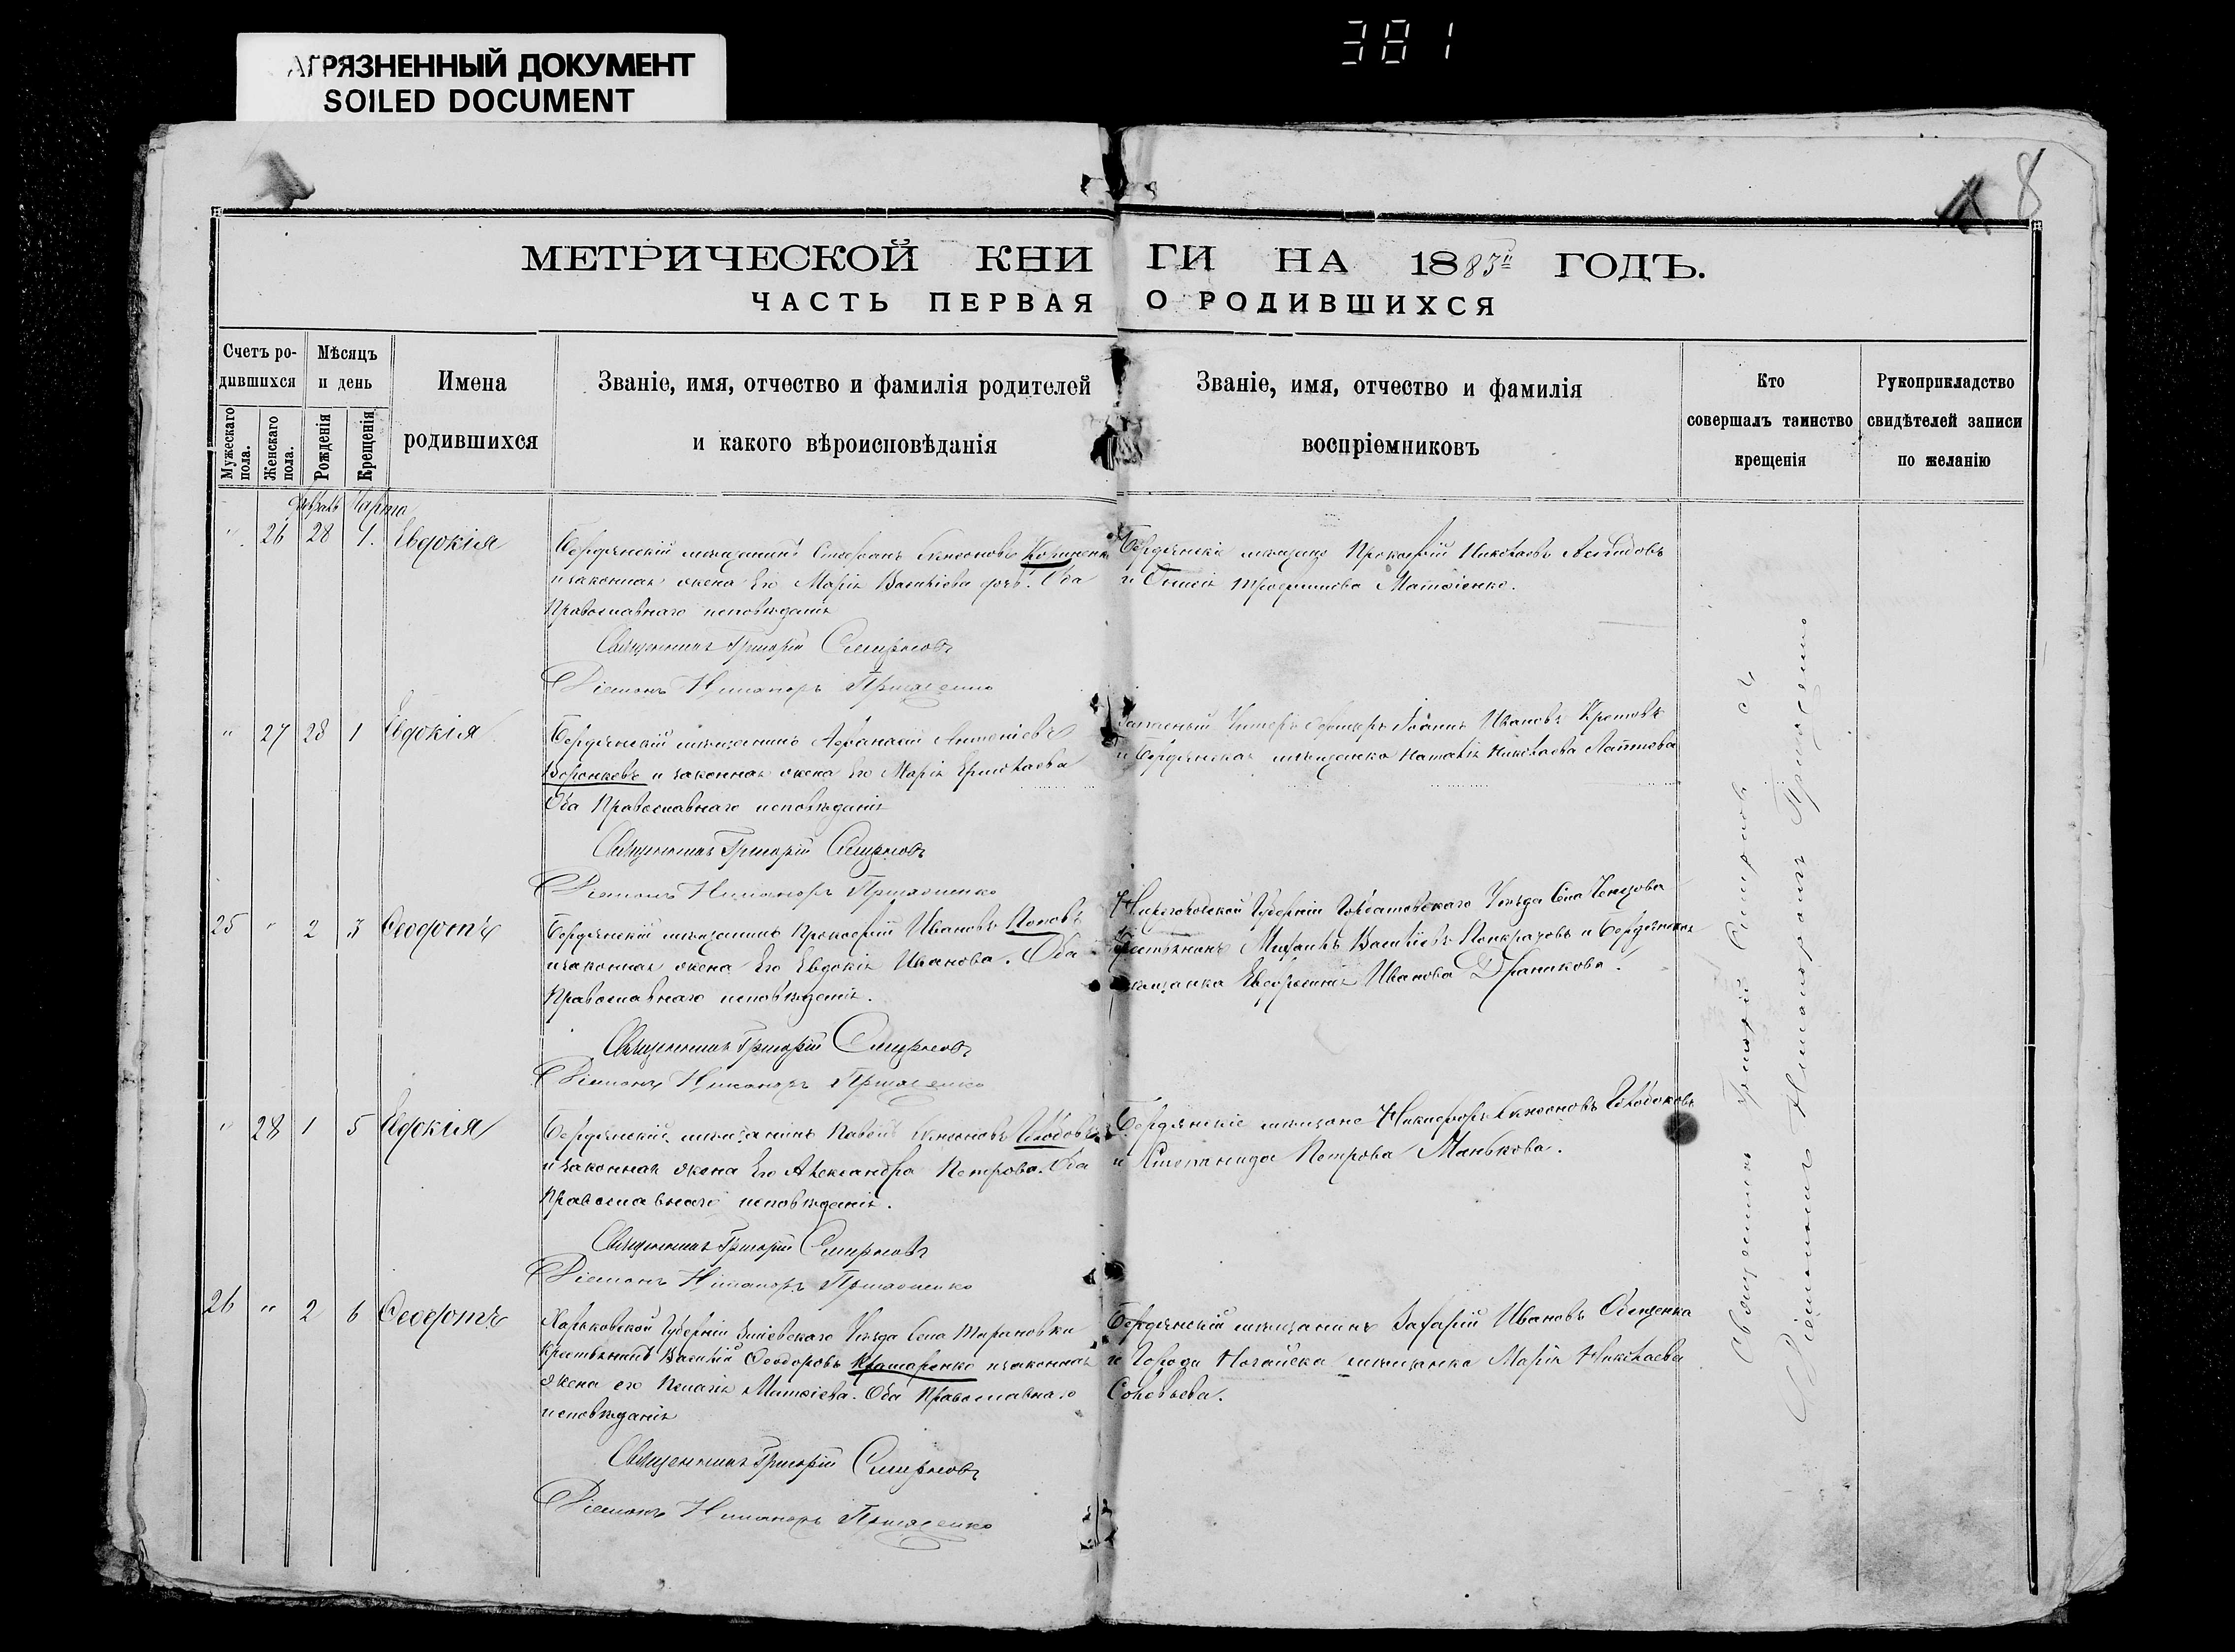 381
АГРЯЗНЕННЫЙ ДОКУМЕНТ
SOILED DOCUMENT
8
МЕТРИЧЕСКОЙ КНИГИ НА 1883й ГОДЪ.
ЧАСТЬ ПЕРВАЯ О РОДИВШИХСЯ
Счетъ ро-
дившихся
Мужескаго пола.
Женскаго пола.
Мѣсяцъ
и день
Рожденія
Крещенія
Имена
родившихся
Званіе, имя, отчество и фамилія родителей
и какого вѣроисповѣданія
Званіе, имя, отчество и фамилія
воспріемниковъ
Кто
совершалъ таинство
крещенія
Рукоприкладство
свидѣтелей записи
по желанію
Марта
" 26 28 1. Евдокія
Бердянскій мѣщанинъ Стефанъ
и законная жена Его Марія Василіева Оба
Православнаго исповѣданія
Священникъ Григорій Смирновъ
Діаконъ Никаноръ
Бердянскіе мѣщане Прокофій Николаевъ
и Трофимова Матвіенко.
" 27 28 1 Евдокія
Бердянскій мѣщанинъ Афанасій
Воронковъ и законная жена Его Марія Ермолаева
Оба Православнаго исповѣданія
Священникъ Григорій Смирновъ
Діаконъ Никаноръ
Унтеръ Офицеръ Іоаннъ Ивановъ
и Бердянская мѣщанка Наталія Николаева
25 " 2 3 Ѳеодотъ
Бердянскій мѣщанинъ Прокофій Ивановъ Поповъ
и законная жена Его Евдокія Иванова. Оба
Православнаго исповѣданія.
Священникъ Григорій Смирновъ
Діаконъ Никаноръ
Нижегородской Губерніи Горбатовскаго Уѣзда Села
Михаилъ Василіевъ Панкратовъ и Бердянская
мѣщанка Евфросинія Иванова
" 28 1 5 Евдокія
Бердянскій мѣщанинъ Павелъ
и законная жена Его Александра Петрова. Оба
Православнаго исповѣданія.
Священникъ Григорій Смирновъ
Діаконъ Никаноръ
Бердянскіе мѣщане Никифоръ
и Петрова Манькова.
26 " 2 6 Ѳеодотъ
Харьковской Губерніи Зміевскаго Уѣзда Села Тарановки
Крестьянинъ Василій Ѳеодоровъ и законная
жена его Пелагія Матвіева. Оба Православнаго
исповѣданія
Священникъ Григорій Смирновъ
Діаконъ Никаноръ
Бердянскій мѣщанинъ Захарій Ивановъ
и Города Ногайска мѣщанка Марія Николаева
Соловьева.
Священникъ Григорій Смирновъ съ
Діакономъ Никаноромъ